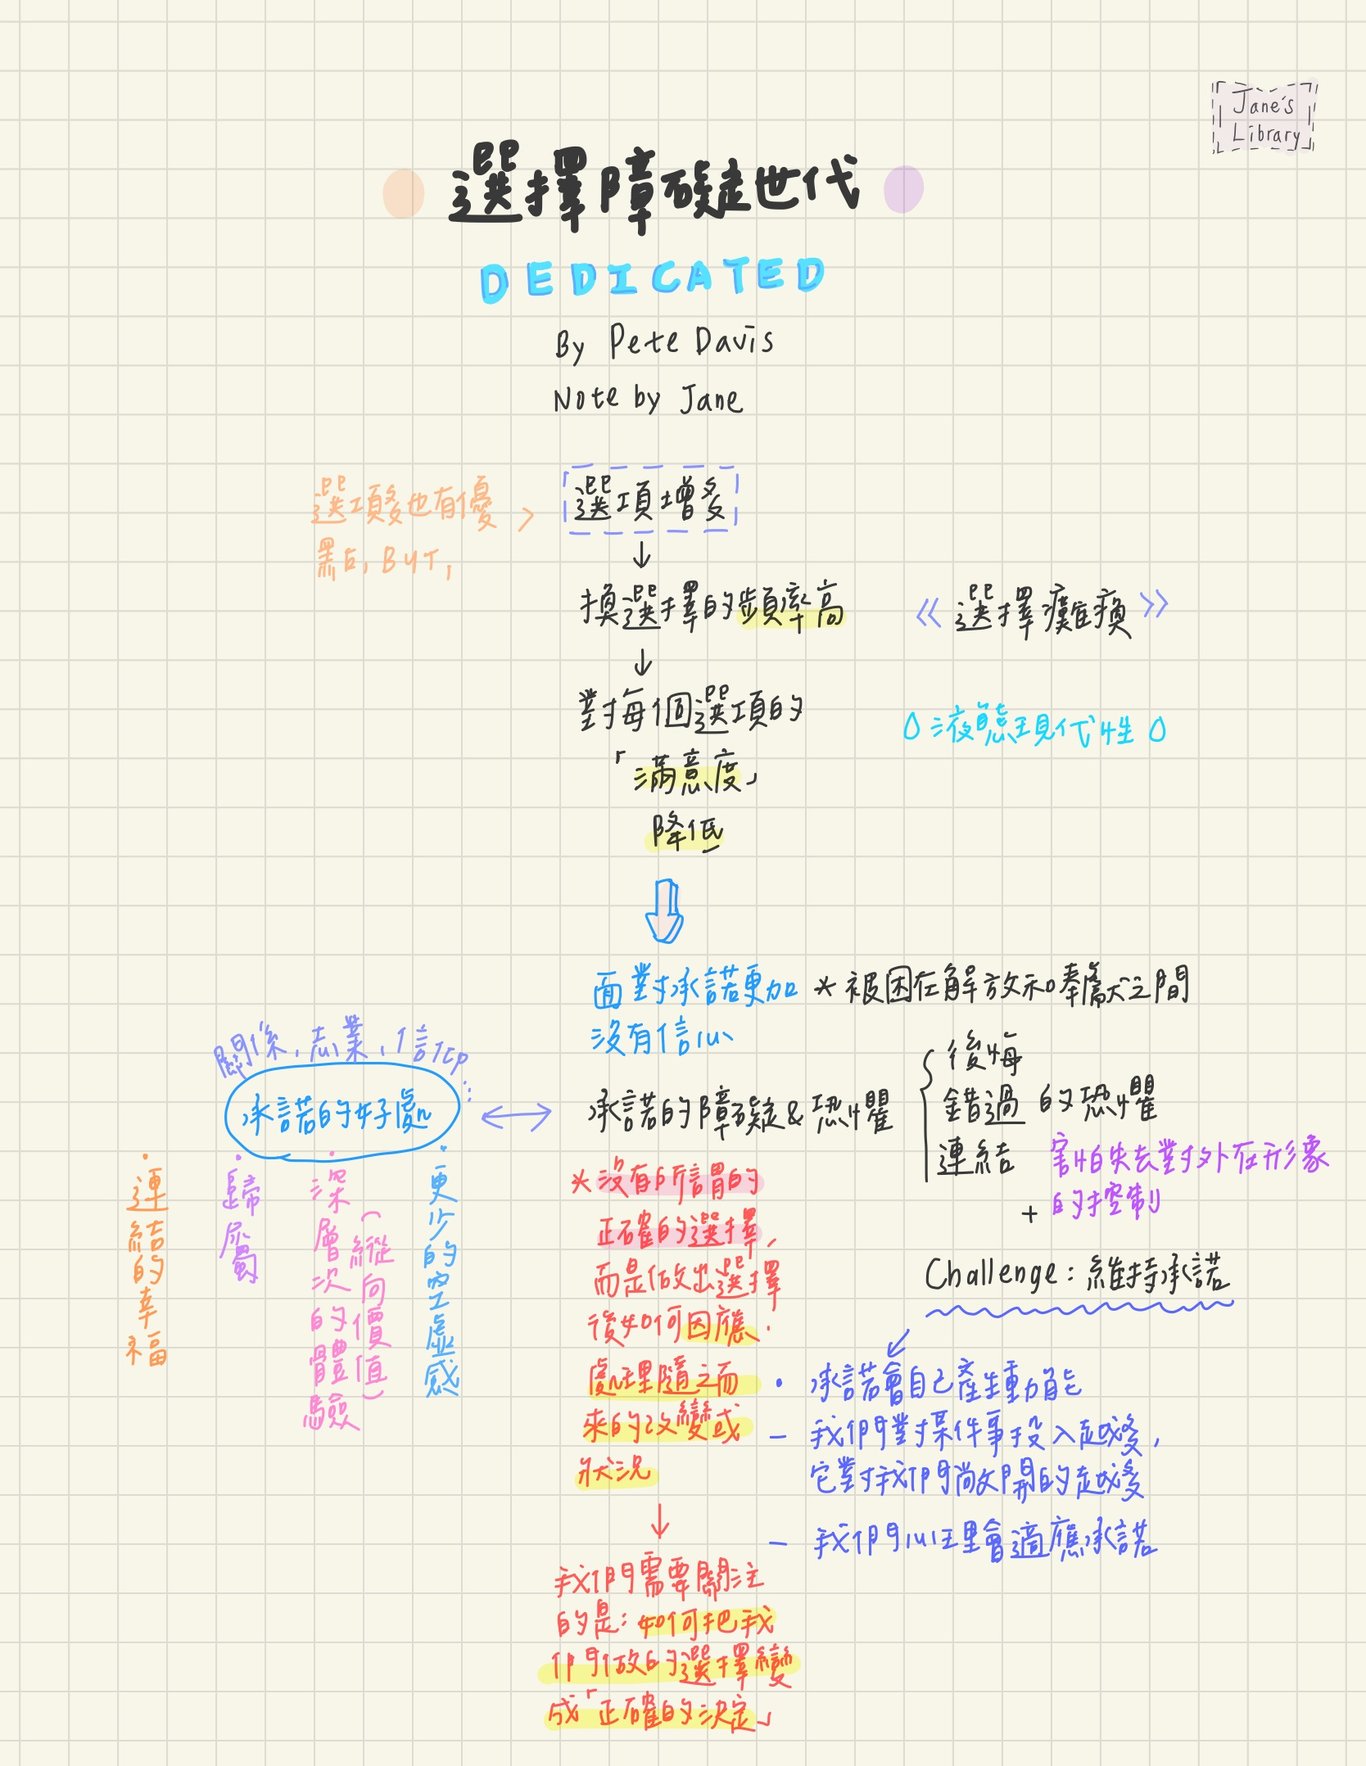 Jane's
Library
選擇障礙世代
DEDICATED
By Pete Davis
Note by Jane
選項多也有優
點, BUT,
選項增多
↓
換選擇的頻率高
《選擇癱瘓》
↓
對每個選項的
「滿意度」
降低
液態現代性
面對承諾更加
沒有信心
*被困在解放和奉獻之間
關係, 志業, 信仰...
承諾的好處
承諾的障礙&恐懼
後悔
錯過 的恐懼
連結
+ 害怕失去對外在形象
的控制
·連結的幸福
·歸屬
·深層次的體驗
(縱向價值)
·更少的空虛感
*沒有所謂的
正確的選擇,
而是做出選擇
後如何因應.
處理隨之而
來的改變或
狀況
↓
我們需要關注
的是: 如何把我
們做的選擇變
成「正確的決定」
Challenge: 維持承諾
· 承諾會自己產生動能
- 我們對某件事投入越多,
它對我們敞開的越多
- 我們心理會適應承諾